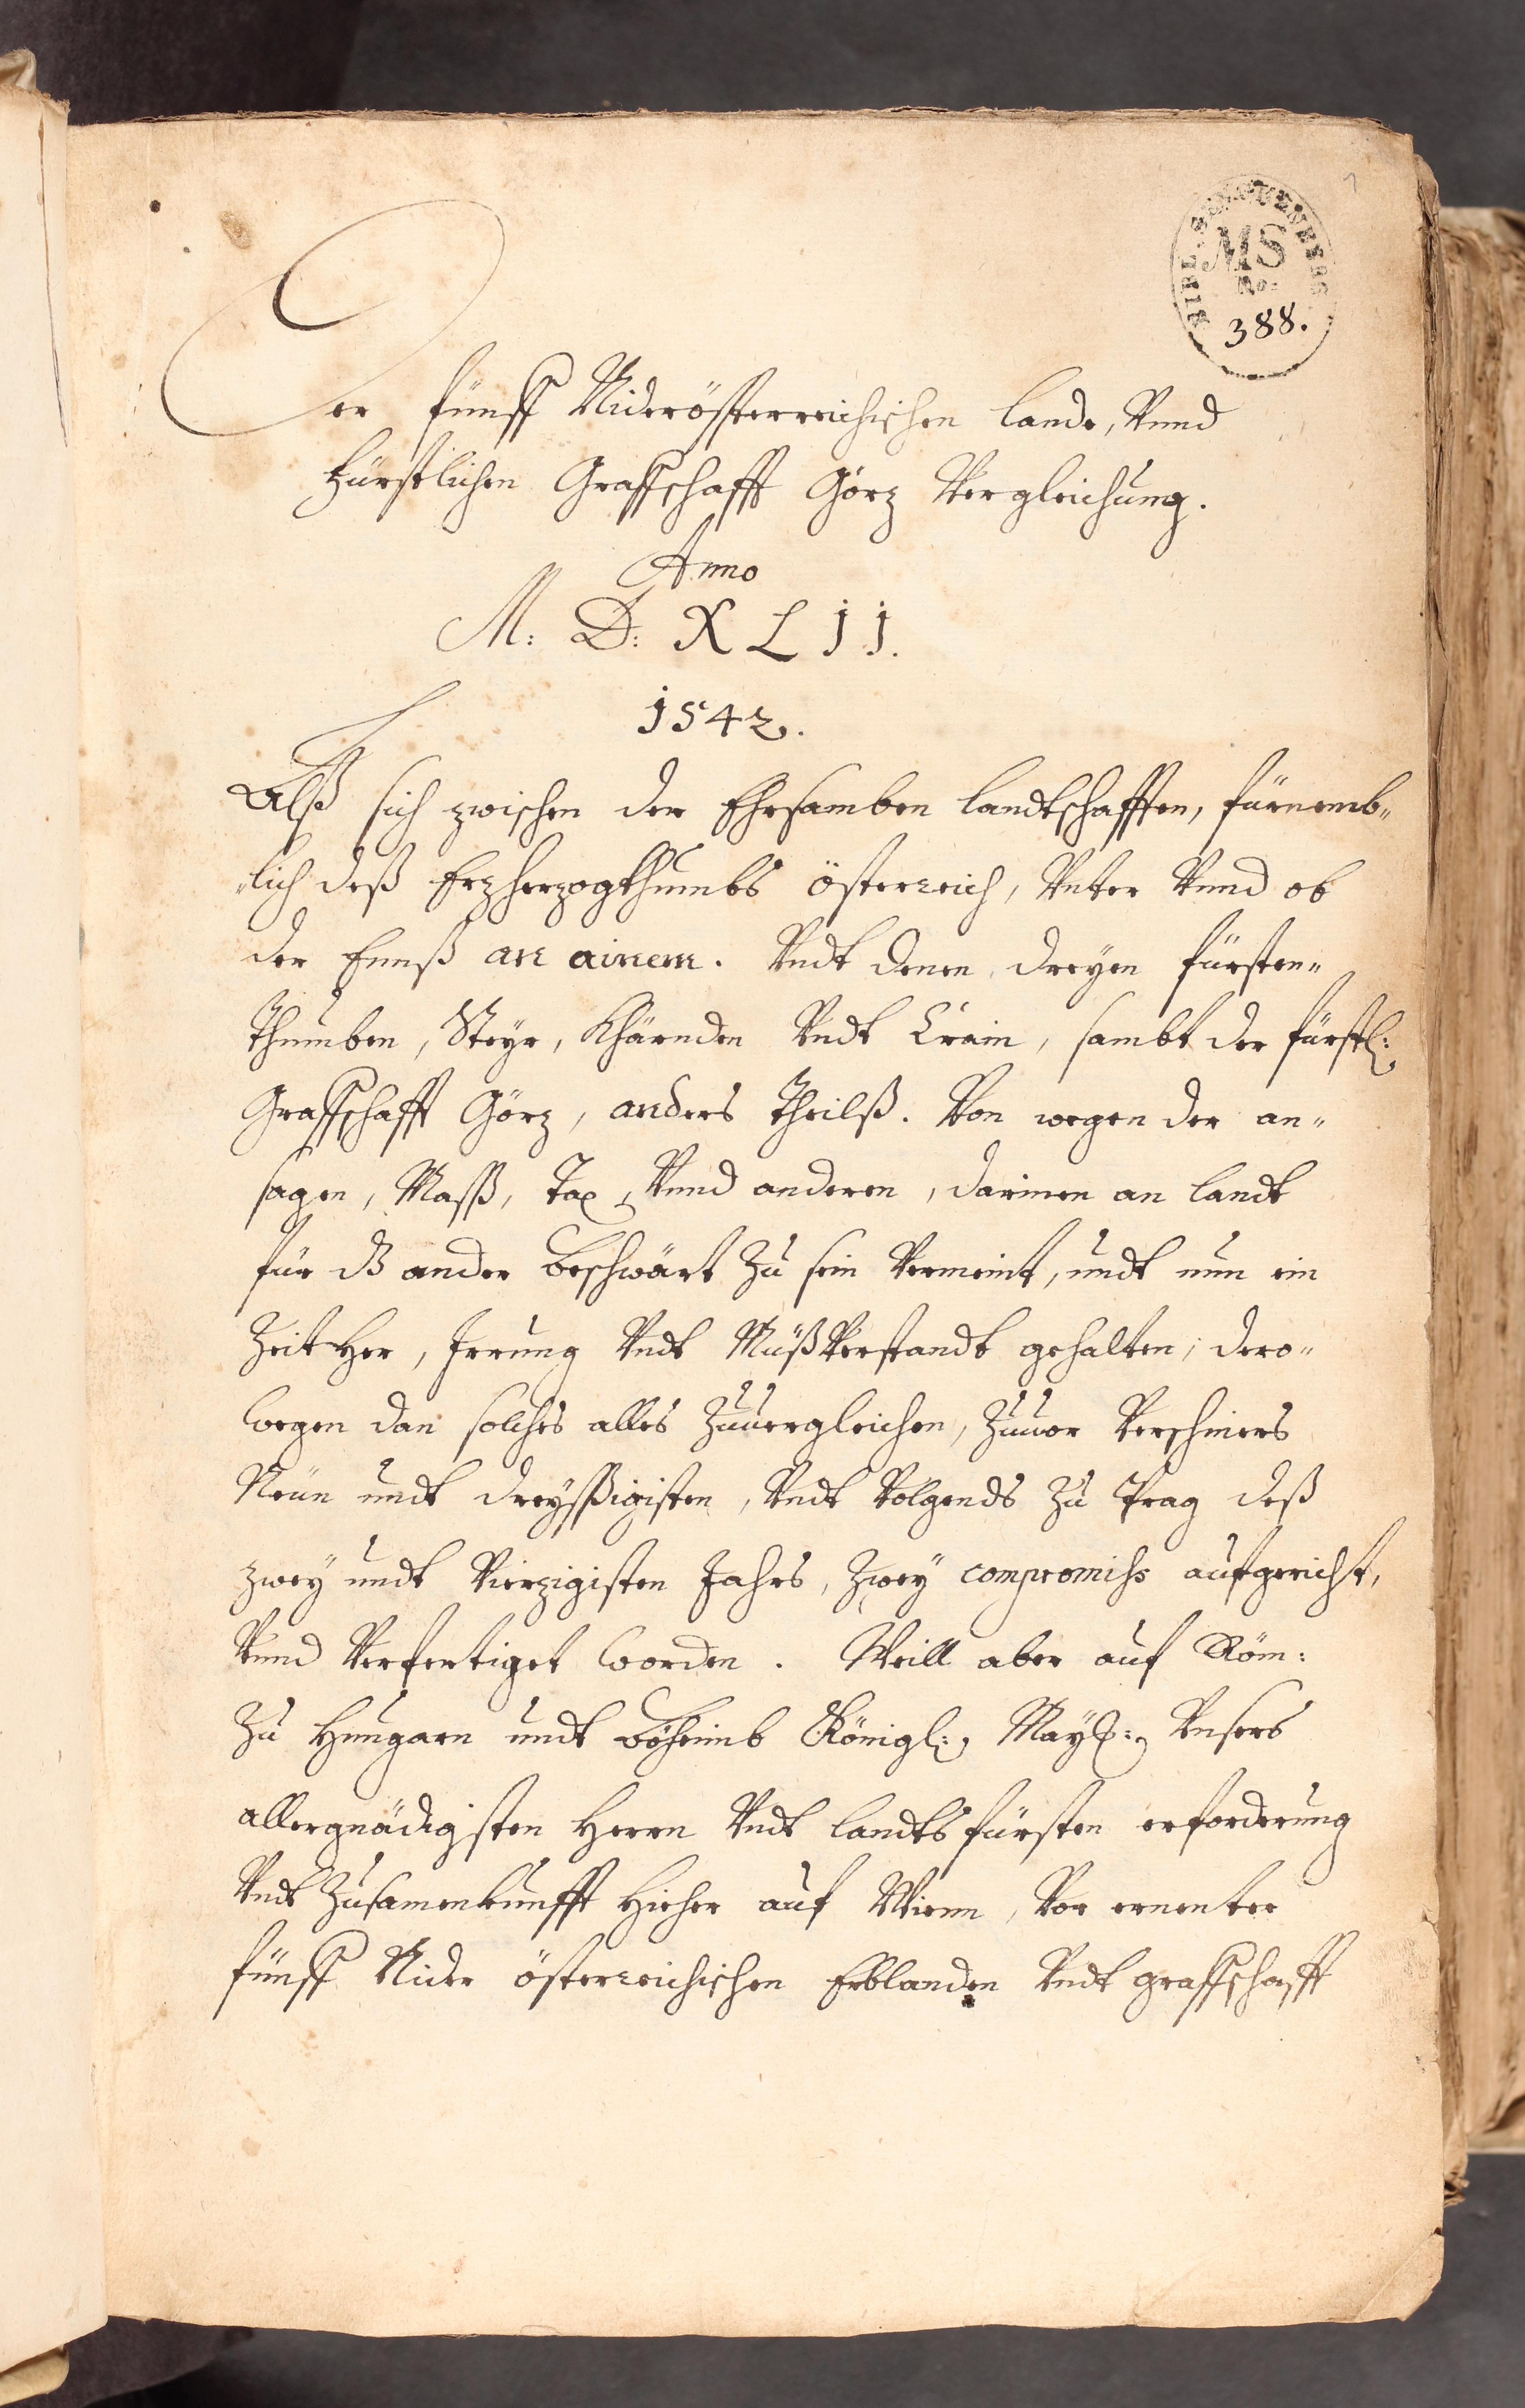 1
BIBL. SEMP. GUENBERG
MS
No.
388.
Der fünff Niderösterreichischen Lande, Vnnd
Fürstlichen Graffschafft Görz Vergleichung.
Anno
M: D: X L I I.
1542.
Alß sich zwischen der Ehrsamben Landtschafften, fürnemb„
„lich deß Erzherzogthumbs Österreich, Vnter Vnnd ob
der Ennß an ainem. Vndt denen dreyen Fürsten„
Thumben, Steyr, Khärnden Vndt Crain, sambt der fürstl:
Graffschafft Görz, anders Theilß. Von wegen der an„
sagen, Maß, Tax, Vnnd anderen, darinen an Landt
für dß ander beschwärt zu sein Vermeint, undt nun ein
Zeit Her, Irrung Vndt Müßverstandt gehalten; dero„
wegen dan solches alles zuuergleichen, zuuor Verschiners
Neun undt dreyssigisten, Vndt Volgends zu Prag deß
zwey undt Vierzigisten Jahrs, zwey compromiss aufgericht,
Vnnd Verfertiget worden. Weill aber auf Röm:
zu Hungarn undt Böheimb Königl: May: Vnsers
allergnädigsten Herrn Vndt Landtsfürsten erforderung
Vndt Zusamenkunfft Hieher auf Wienn, Vor ernenter
fünff Nider österreichischen Erblanden Vndt graffschafft